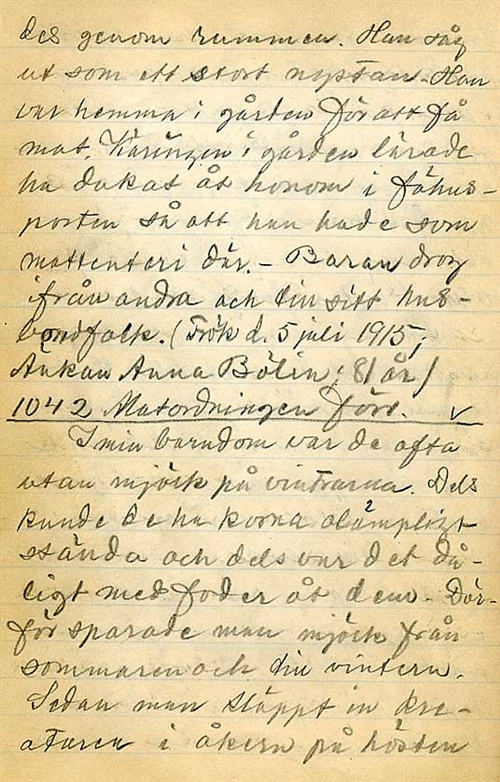 des genom rummen. Han såg
ut som ett stort nystan. Han
var hemma i gården för att få
mat. Käringen i gården lärade
ha dukat åt honom i fähus-
porten så att han hade som
mattenteri där. - Baran drog
ifrån andra och din sitt hus-
bondfolk. (Frök d. 5 juli 1915;
Änkan Anna Bölin; 81 år)
1042 Matordningen förr.
I min barndom var de ofta
utan mjölk på vintrarna. Dels
kunde de ha korna olämpligt
stånda och dels var det då-
ligt med foder åt dem. Där-
för sparade man mjölk från
sommaren och din vintern.
Sedan man släppt in kre-
aturen i åkern på hösten